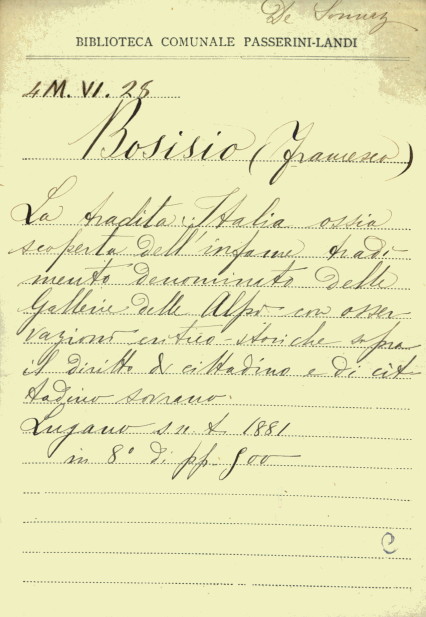 De
BIBLIOTECA COMUNALE PASSERINI-LANDI
4 M. VI. 28
Bosisio (Francesco)
La tradita Italia ossia
scoperta dell'infame tradi-
mento denominato delle
Gallerie delle Alpi con osser-
vazioni critico-storiche sopra
il diritto di cittadino e di cit-
tadino sovrano.
Lugano s. n. t. 1881
in 8° di pp.
C